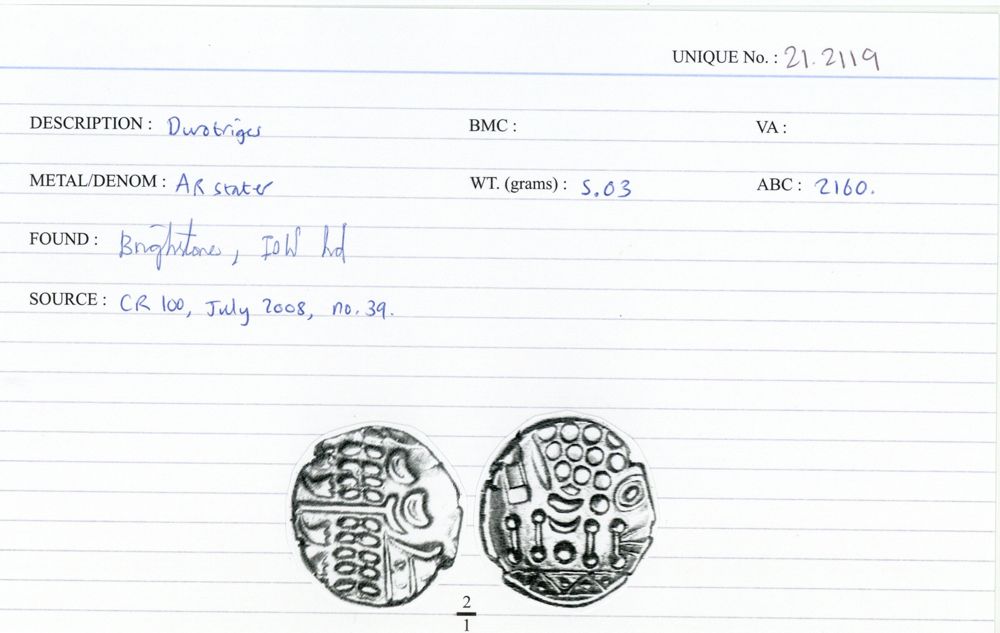 UNIQUE No. : 21.2119
DESCRIPTION : Durotriges BMC : VA :
METAL/DENOM : AR stater WT. (grams) : 5.03 ABC : 2160.
FOUND : Brighstone, IOW hd
SOURCE : CR 100, July 2008, no. 39.
2
1